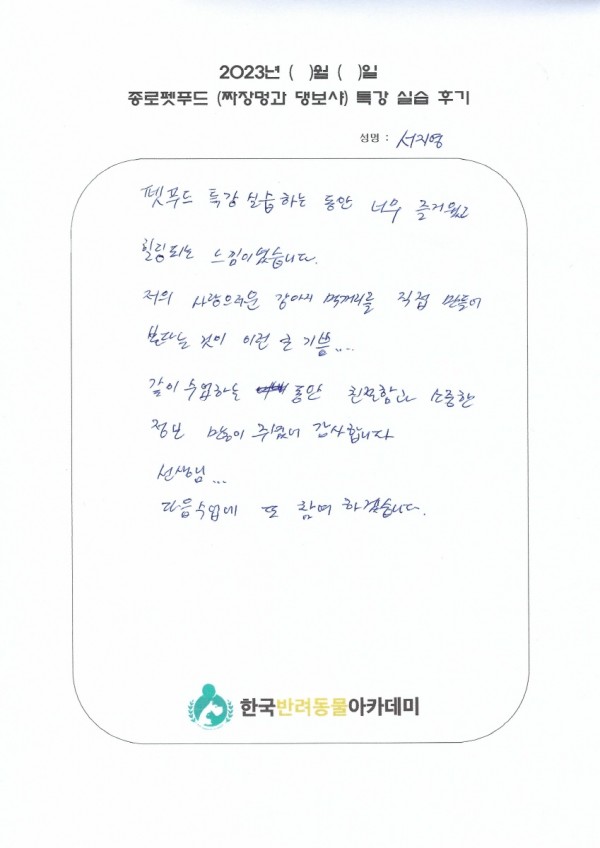 2023년 (  )월 (  )일
종로펫푸드 (짜장멍과 댕보샤) 특강 실습 후기
성명 : 서지영
펫푸드 특강 실습 하는 동안 너무 즐거웠고
힐링되는 느낌이었습니다.
저의 사랑스러운 강아지 먹꺼리를 직접 만들어
본다는 것이 이런 큰 기쁨....
같이 수업하는 동안 친절함과 소중한
정보 많이 주셨너 감사합니다
선생님...
다음수업에 또 참여 하겠습니다.
한국반려동물아카데미